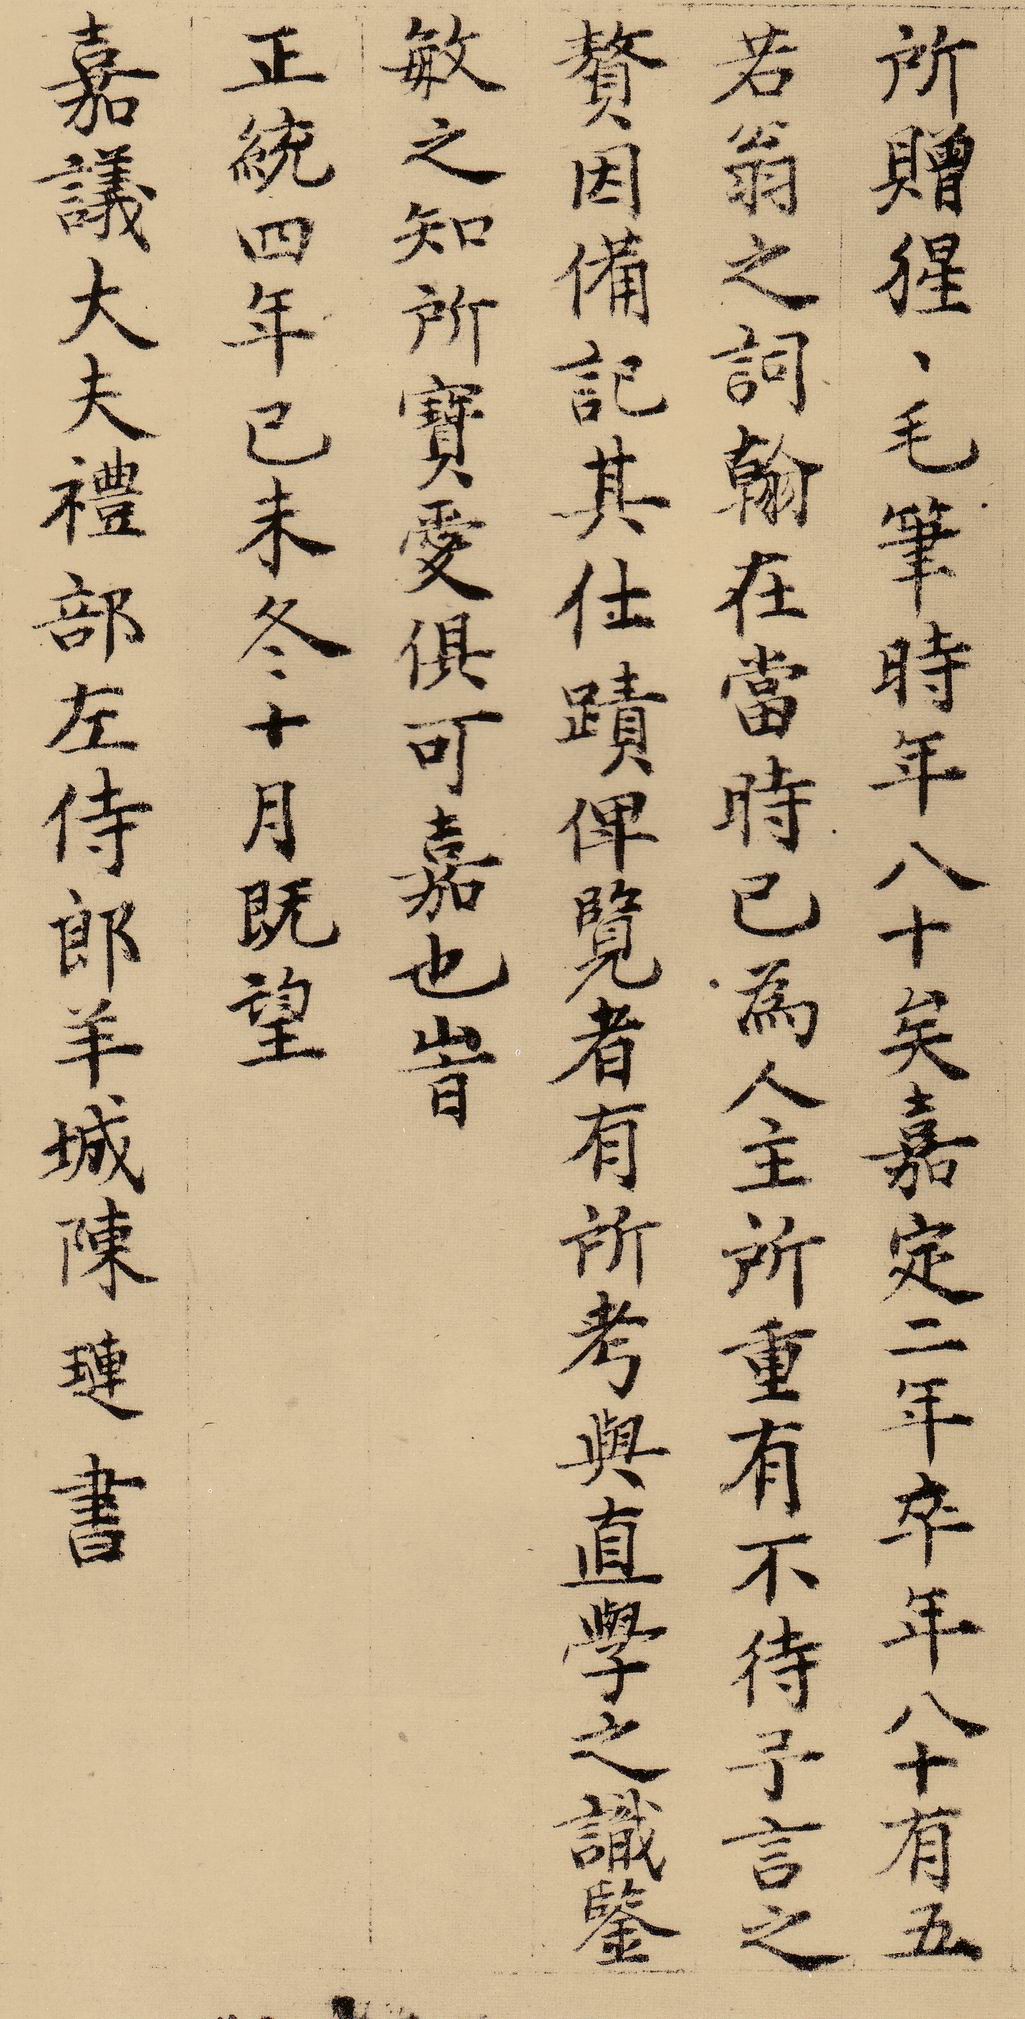 所贈猩〻毛筆時年八十矣嘉定二年卒年八十有五
若翁之詞翰在當時已為人主所重有不待予言之
贅因備記其仕蹟俾覽者有所考與直學之識鑒
敏之知所寶愛俱可嘉也旹
正統四年己未冬十月既望
嘉議大夫禮部左侍郎羊城陳璉書